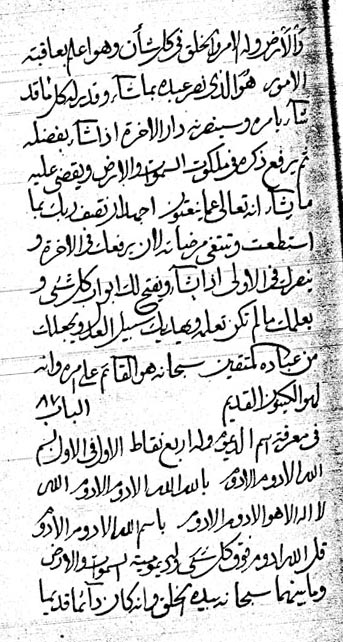 والارض وله الامر والخلق في كل شأن وهو اعلم بعاقبة
الامور هو الذي نصر عبده بما شاء وقدر له كل ما قد
شاء بامره وسينصرنه دار الاخرة اذا شاء بفضله
ثم يرفع ذكره في ملكوت السموات والارض ويقضي عليه
ما يشاء انه تعالى عما اجهد ان بما
استطعت وتبتغي مرضاته ان يرفعك في الاخرة و
ينصرك في الاولى اذا شاء ويفتح لك ابواب كل شيء و
يعلمك ما لم تكن تعلم ويهديك سبيل العدل ويجعلك
من عباده المتقين سبحانه هو القائم على امره وانه
لهو القديم الباب ٨٧
في معرفة اسم الديوم وله اربع نقاط الاول في الاول بسم
الله الادوم الادوم بالله الله الادوم الادوم الله
لا اله الا هو الادوم الادوم باسم الله الادوم الادوم
قل الله ادوم فوق كل شيء السموات والارض
وما بينهما سبحانه بيده الخلق وانه كان دائما قديما